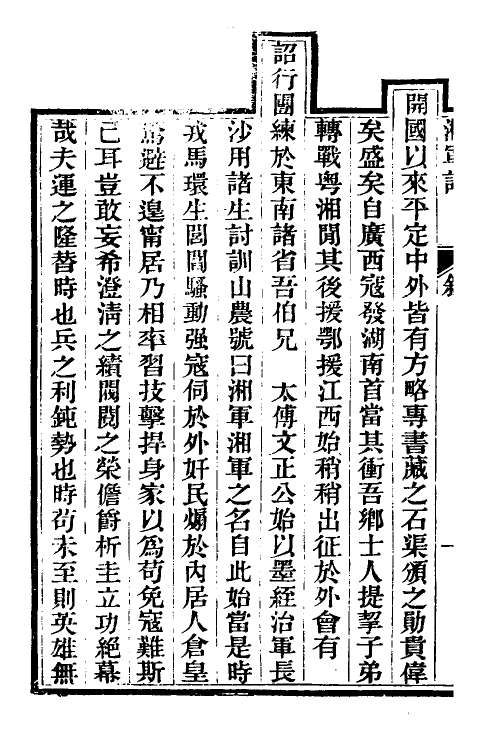 湘軍記 敘 一
開國以來平定中外皆有方略專書藏之石渠頒之勛貴偉
矣盛矣自廣西寇發湖南首當其衝吾鄉士人提挈子弟
轉戰粵湘閒其後援鄂援江西始稍稍出征於外會有
詔行團練於東南諸省吾伯兄 太傅文正公始以墨絰治軍長
沙用諸生討訓山農號曰湘軍湘軍之名自此始當是時
戎馬環生閭閻騷動强寇伺於外奸民煽於內居人倉皇
驚避不遑甯居乃相率習技擊捍身家以爲苟免寇難斯
已耳豈敢妄希澄清之績閥閱之榮儋爵析圭立功絕幕
哉夫運之隆替時也兵之利鈍勢也時苟未至則英雄無